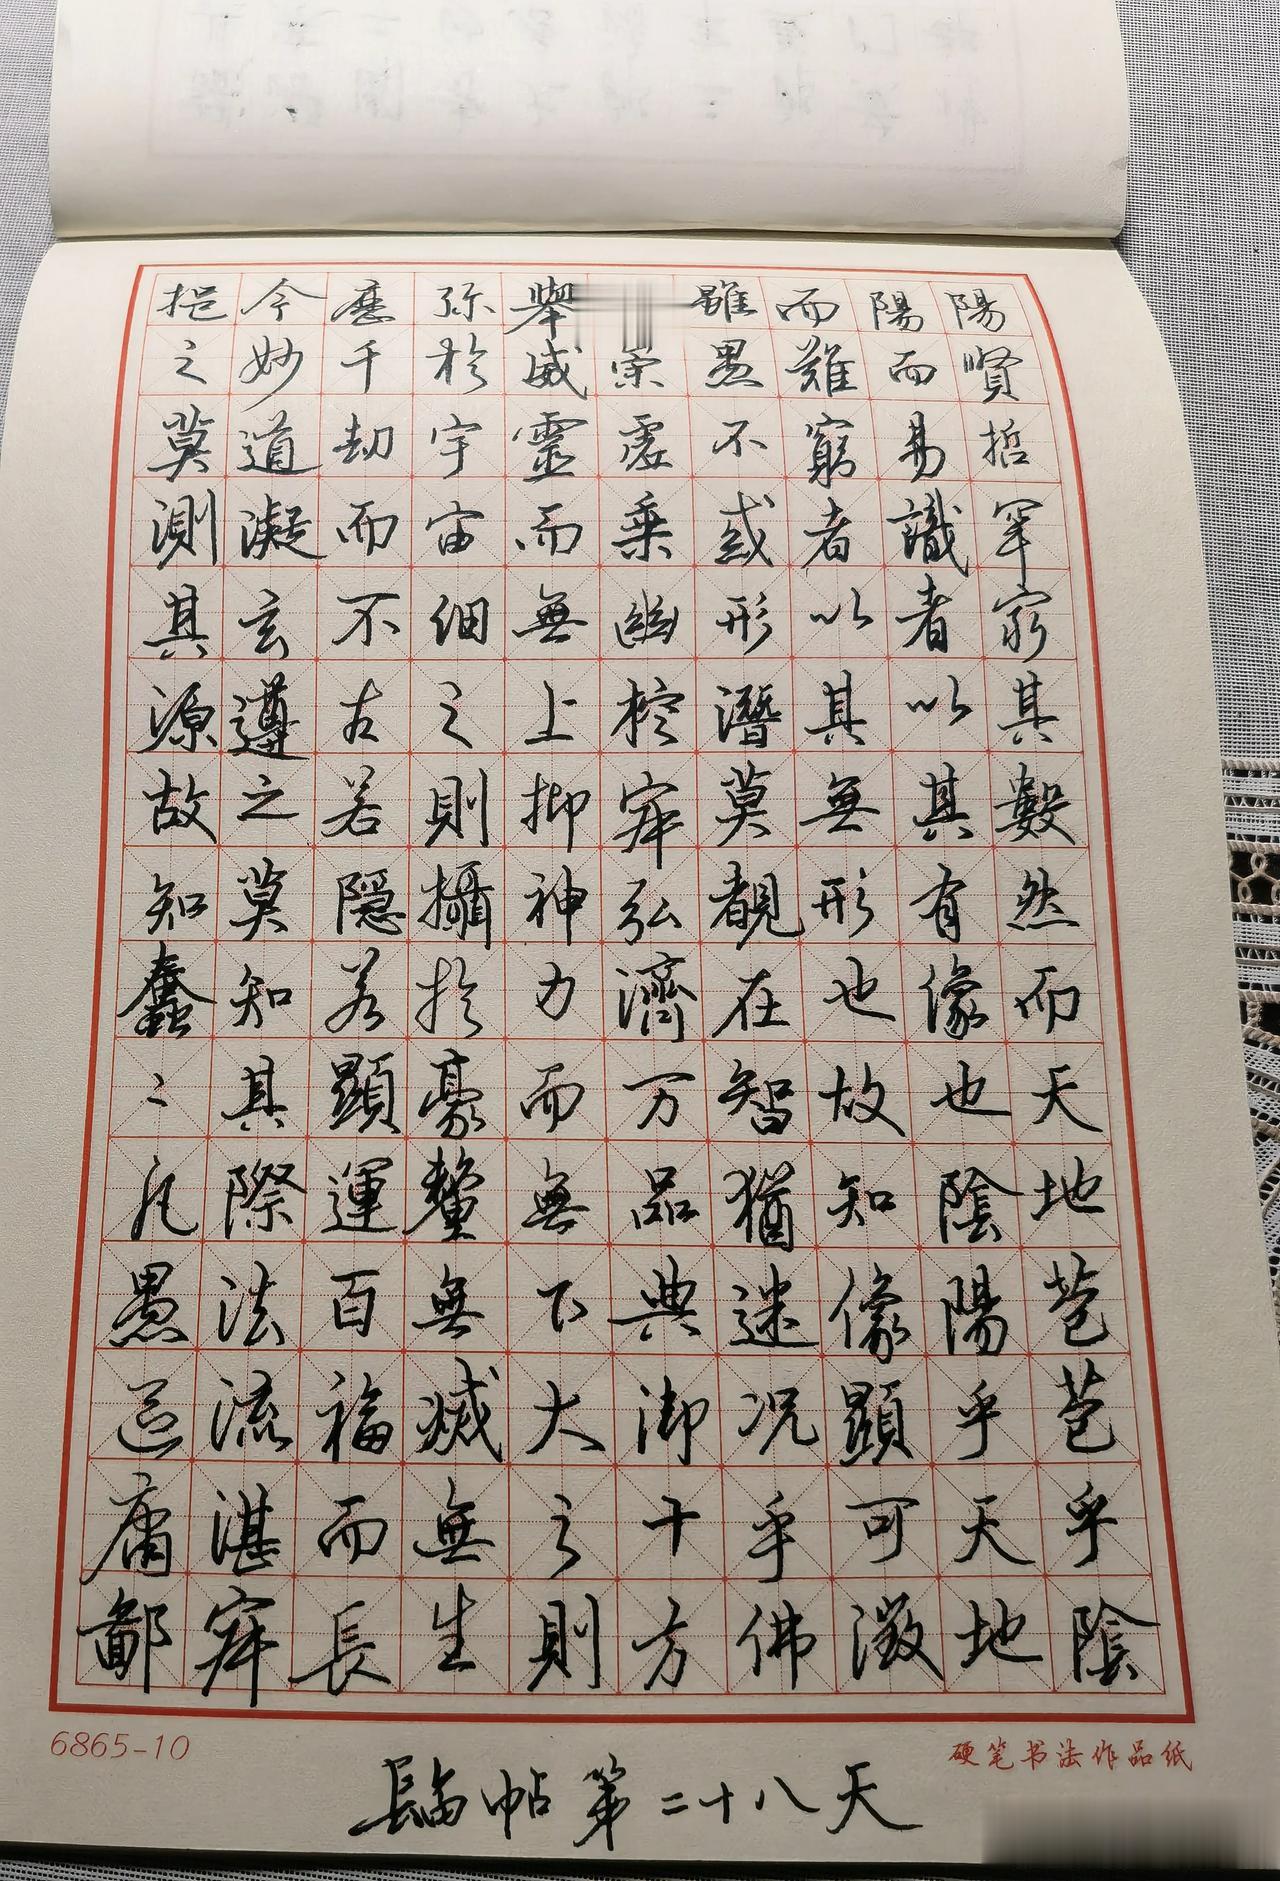 陽賢哲罕窮其數然而天地苞苞乎陰
陽而易識者以其有像也陰陽乎天地
而難窮者以其無形也故知像顯可徵
雖愚不惑形潛莫覩在智猶迷況乎佛
崇虛乘幽控寂弘濟万品典御十方
舉威靈而無上抑神力而無下大之則
弥於宇宙細之則攝於豪釐無滅無生
歷千劫而不古若隱若顯運百福而長
今妙道凝玄遵之莫知其際法流湛寂
挹之莫測其源故知蠢〻凡愚區庸鄙
6865-10
硬笔书法作品纸
臨帖第二十八天